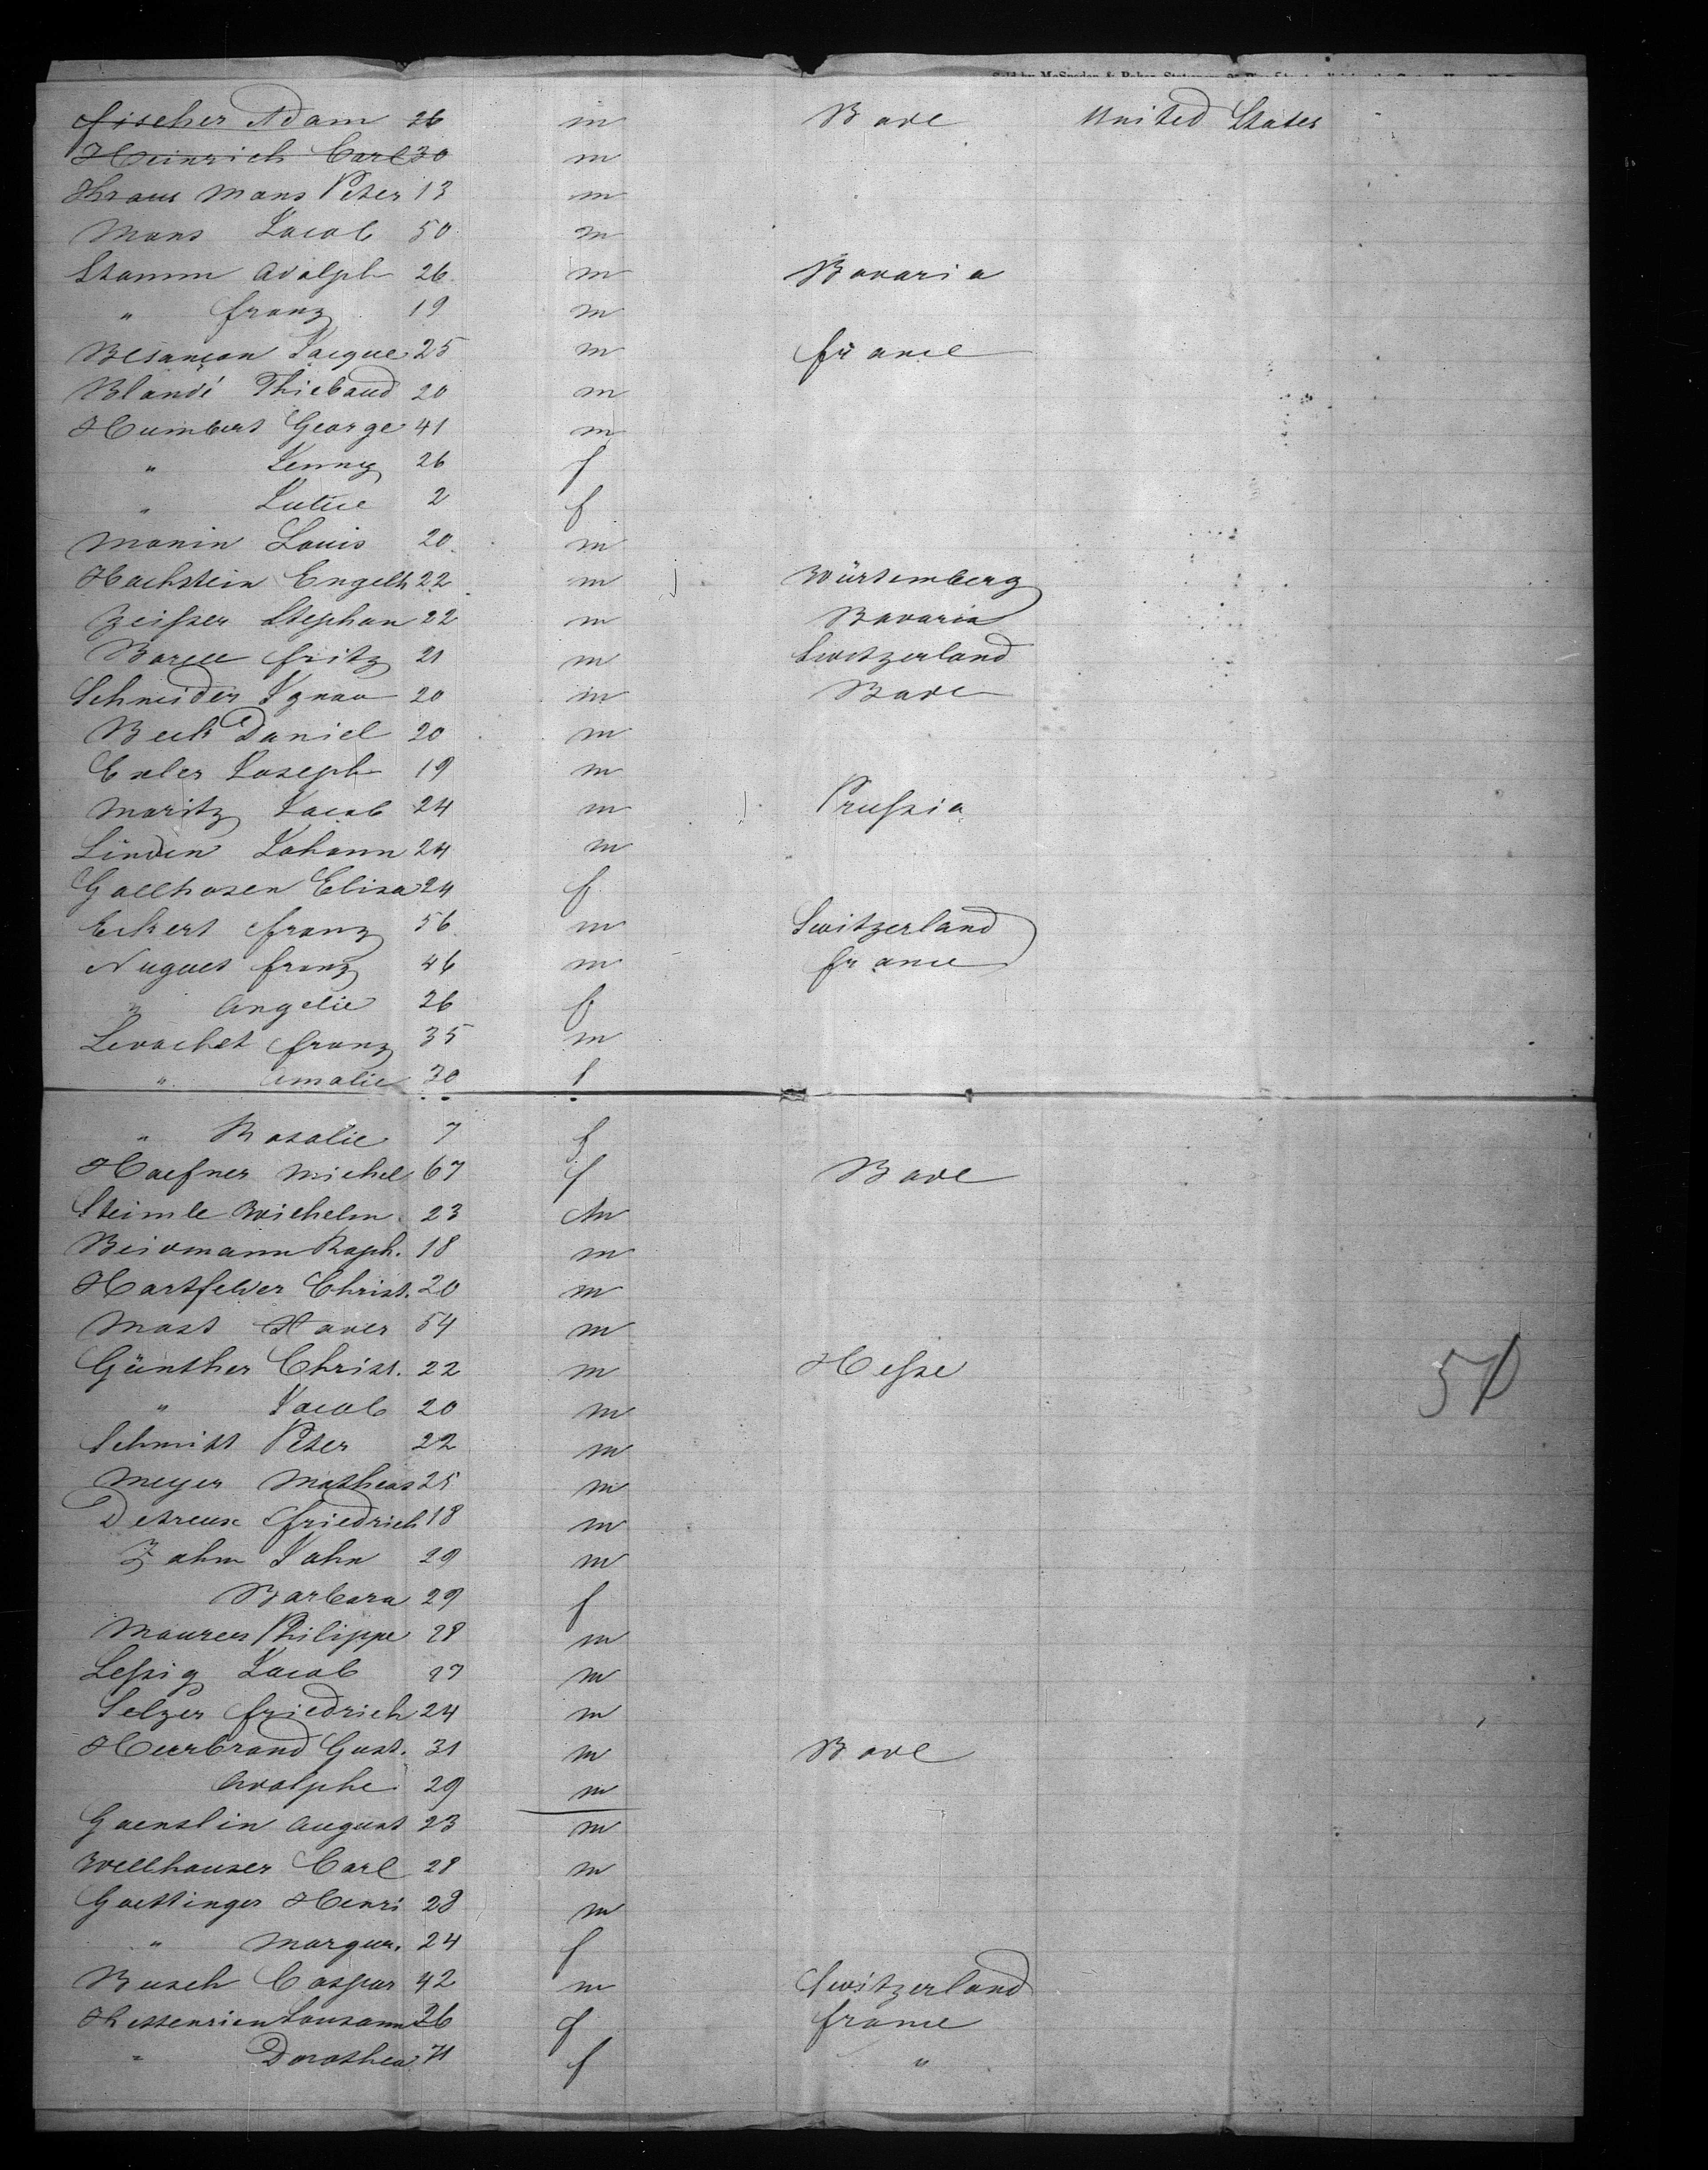 Fischer Adam 26 m Bade United States
Heinrich Carl 30 m
Kraus Mans Peter 13 m
Mans Jacob 50 m
Stamm Adolph 26 m Bavaria
" Franz 19 m
Besançon Jacque 25 m France
Blandé Thiebaud 20 m
Humbert George 41 m
" Jenny 26 f
" 2 f
Monin Louis 20 m
Hachstein Engelh 22 m Würtemberg
Zeisser Stephan 22 m Bavaria
Fritz 21 m Switzerland
Schneider Ignaa 20 m Bade
Beck Daniel 20 m
Exler Joseph 19 m
Moritz Jacob 24 m Prussia
Linden Johann 24 m
Gallhosen Elisa 24 f
Eckert Franz 56 m Switzerland
Nugues Franz 46 m France
" Angelie 26 f
Levachet Franz 35 m
" Amalie 30 f
" Rosalie 7 f
Haefner Michel 67 f Bade
Steimle Wilhelm 23 m
Beidmann Raph. 18 m
Hartfelder Christ. 20 m
Mast Xaver 54 m
Günther Christ. 22 m Hesse
" Jacob 20 m
Schmitt Peter 22 m
Meyer Matheas 25 m
Detreux Friedrich 18 m
Zahm John 29 m
Barbara 29 f
Maurer Philippe 28 m
Lessig Jacob 27 m
Selzer Friedrich 24 m
Heerbrand Gust. 31 m Bade
Adolphe 29 m
Gaenslin August 23 m
Wellhauser Carl 28 m
Goettinger Henri 28 m
" Margur. 24 f
Busch Caspar 42 m Switzerland
26 f France
" Dorothea 71 f "
50